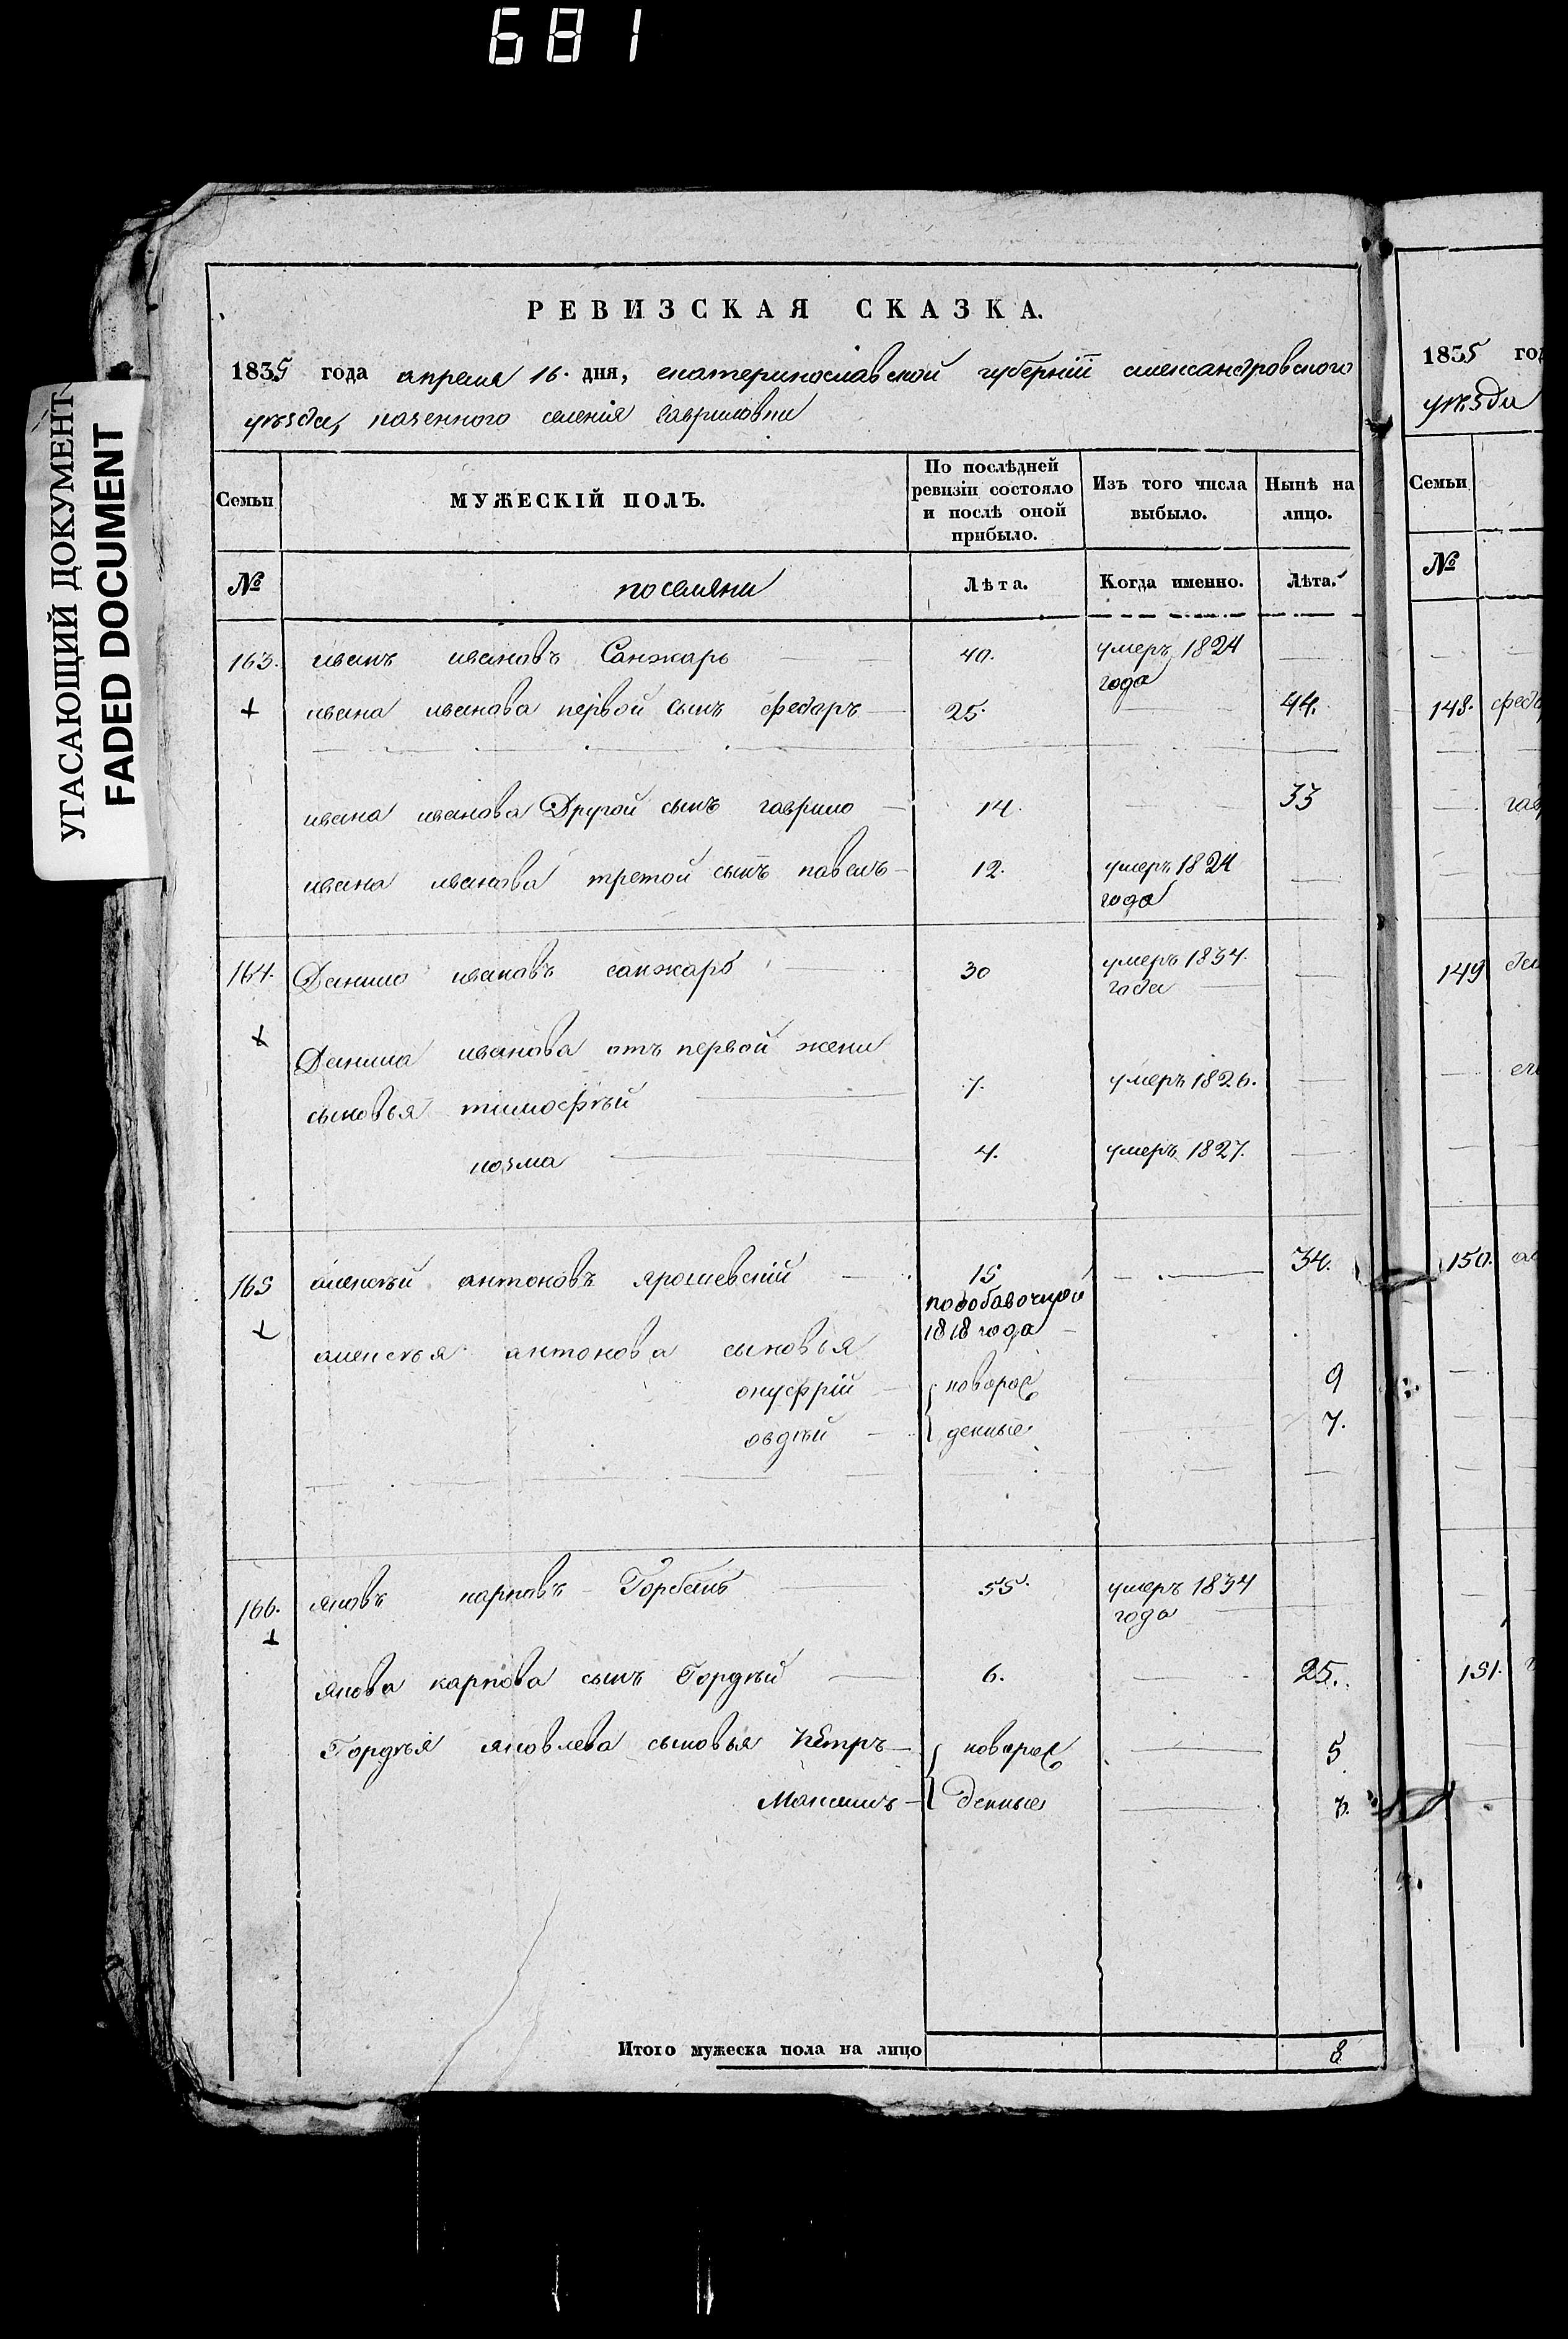 681
УГАСАЮЩИЙ ДОКУМЕНТ
FADED DOCUMENT
РЕВИЗСКАЯ СКАЗКА.
1835 года апреля 16. дня, екатеринославской губерніи александровского
уѣзда, казенного селенія Гавриловки
Семьи
МУЖЕСКІЙ ПОЛЪ.
По послѣдней ревизіи состояло и послѣ оной прибыло.
Изъ того числа выбыло.
Нынѣ на лицо.
№
поселяни
Лѣта.
Когда именно.
Лѣта.
163. иванъ ивановъ Санжаръ 40. умеръ 1824 года
+ ивана иванова первой сынъ федаръ 25. 44.
ивана иванова Другой сынъ гаврило 14. 33
ивана иванова третой сынъ павелъ 12. умеръ 1824 года
164. Данило ивановъ санжаръ 30 умеръ 1834. года
+ Данила иванова отъ первой жени
сыновья тимосфѣй 7. умеръ 1826.
козма 4. умеръ 1827.
165 алексѣй антоновъ ярошевскій 15 34.
подобавочной
1818 года
+ алексѣя антонова сыновья
онуфрій новорож 9
овдѣй денные 7.
166. яковъ карповъ Горбань 55. умеръ 1834
+ года
якова карпова сынъ Гордѣй 6. 25.
Гордѣя яковлева сыновья Пётръ новорож 5
Максимъ денные 3.
Итого мужеска пола на лицо 8
1835 год
уѣзда
Семьи
№
148.
149
150.
151.